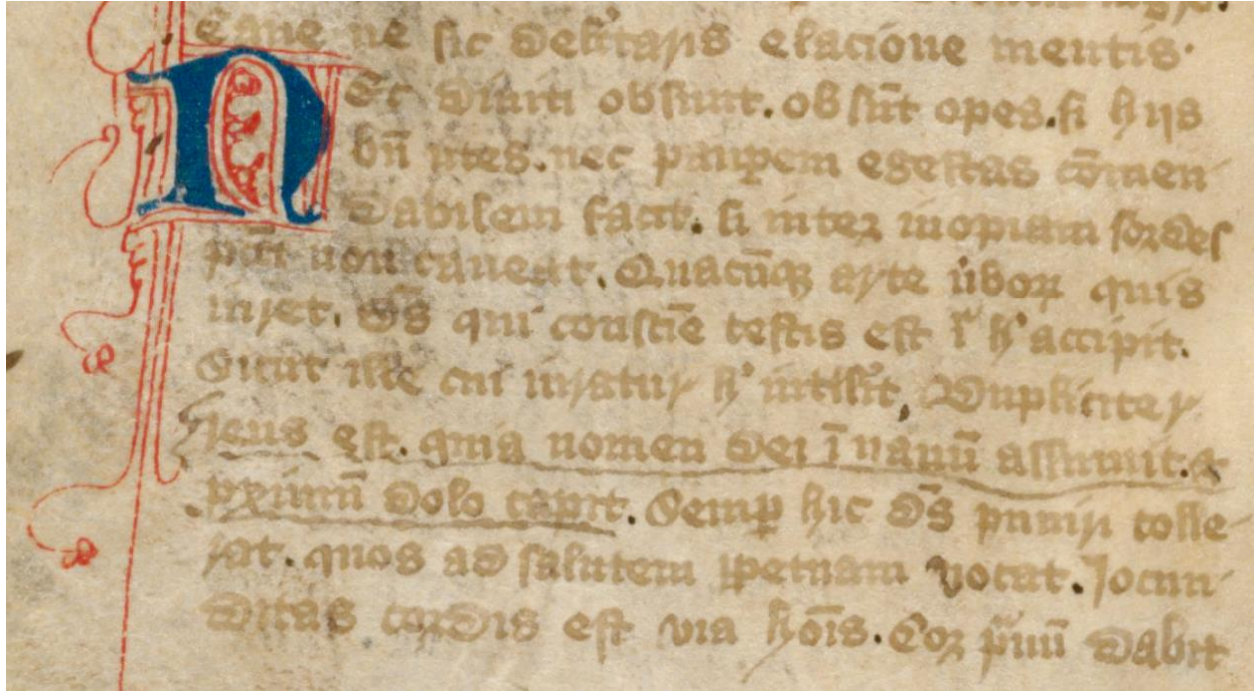 Caue ne sic delr̄taris elacione mentis.
NEc diuiti obsunt. ob sūt opes. si hijs
bn̄ utes. nec paup̲em egestas cōmen
dabilem facit. si inter inopiam sordes
pcc̄i non caueat. Quacūq arte ũboꝝ quis
iuret. ds̄ qui consciē testis est ĩ h' accipit.
Sicut ille cui iuratur h' intillit, Dupliciter
reus est. quia nomen dei ī uanū assumit. &
pxīmū dolo capit. Semꝑ hic ds̄ puniri tolle
rat. quos ad salutem ꝑpetuam uocat. Jocun
ditas cordis est uia hoīs. Cor dabit